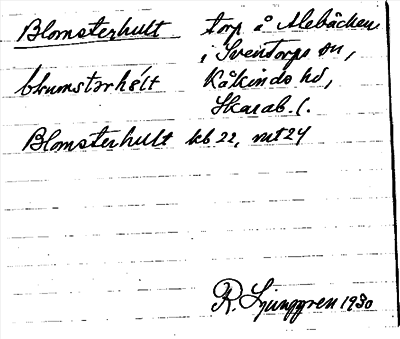 Blomsterhult torp å Alebäcken
i Sventorps sn,
blumstərhəlt Kåkinds hd,
Skarab. l.
Blomsterhult kb 22, mt 24
R. Ljunggren 1930